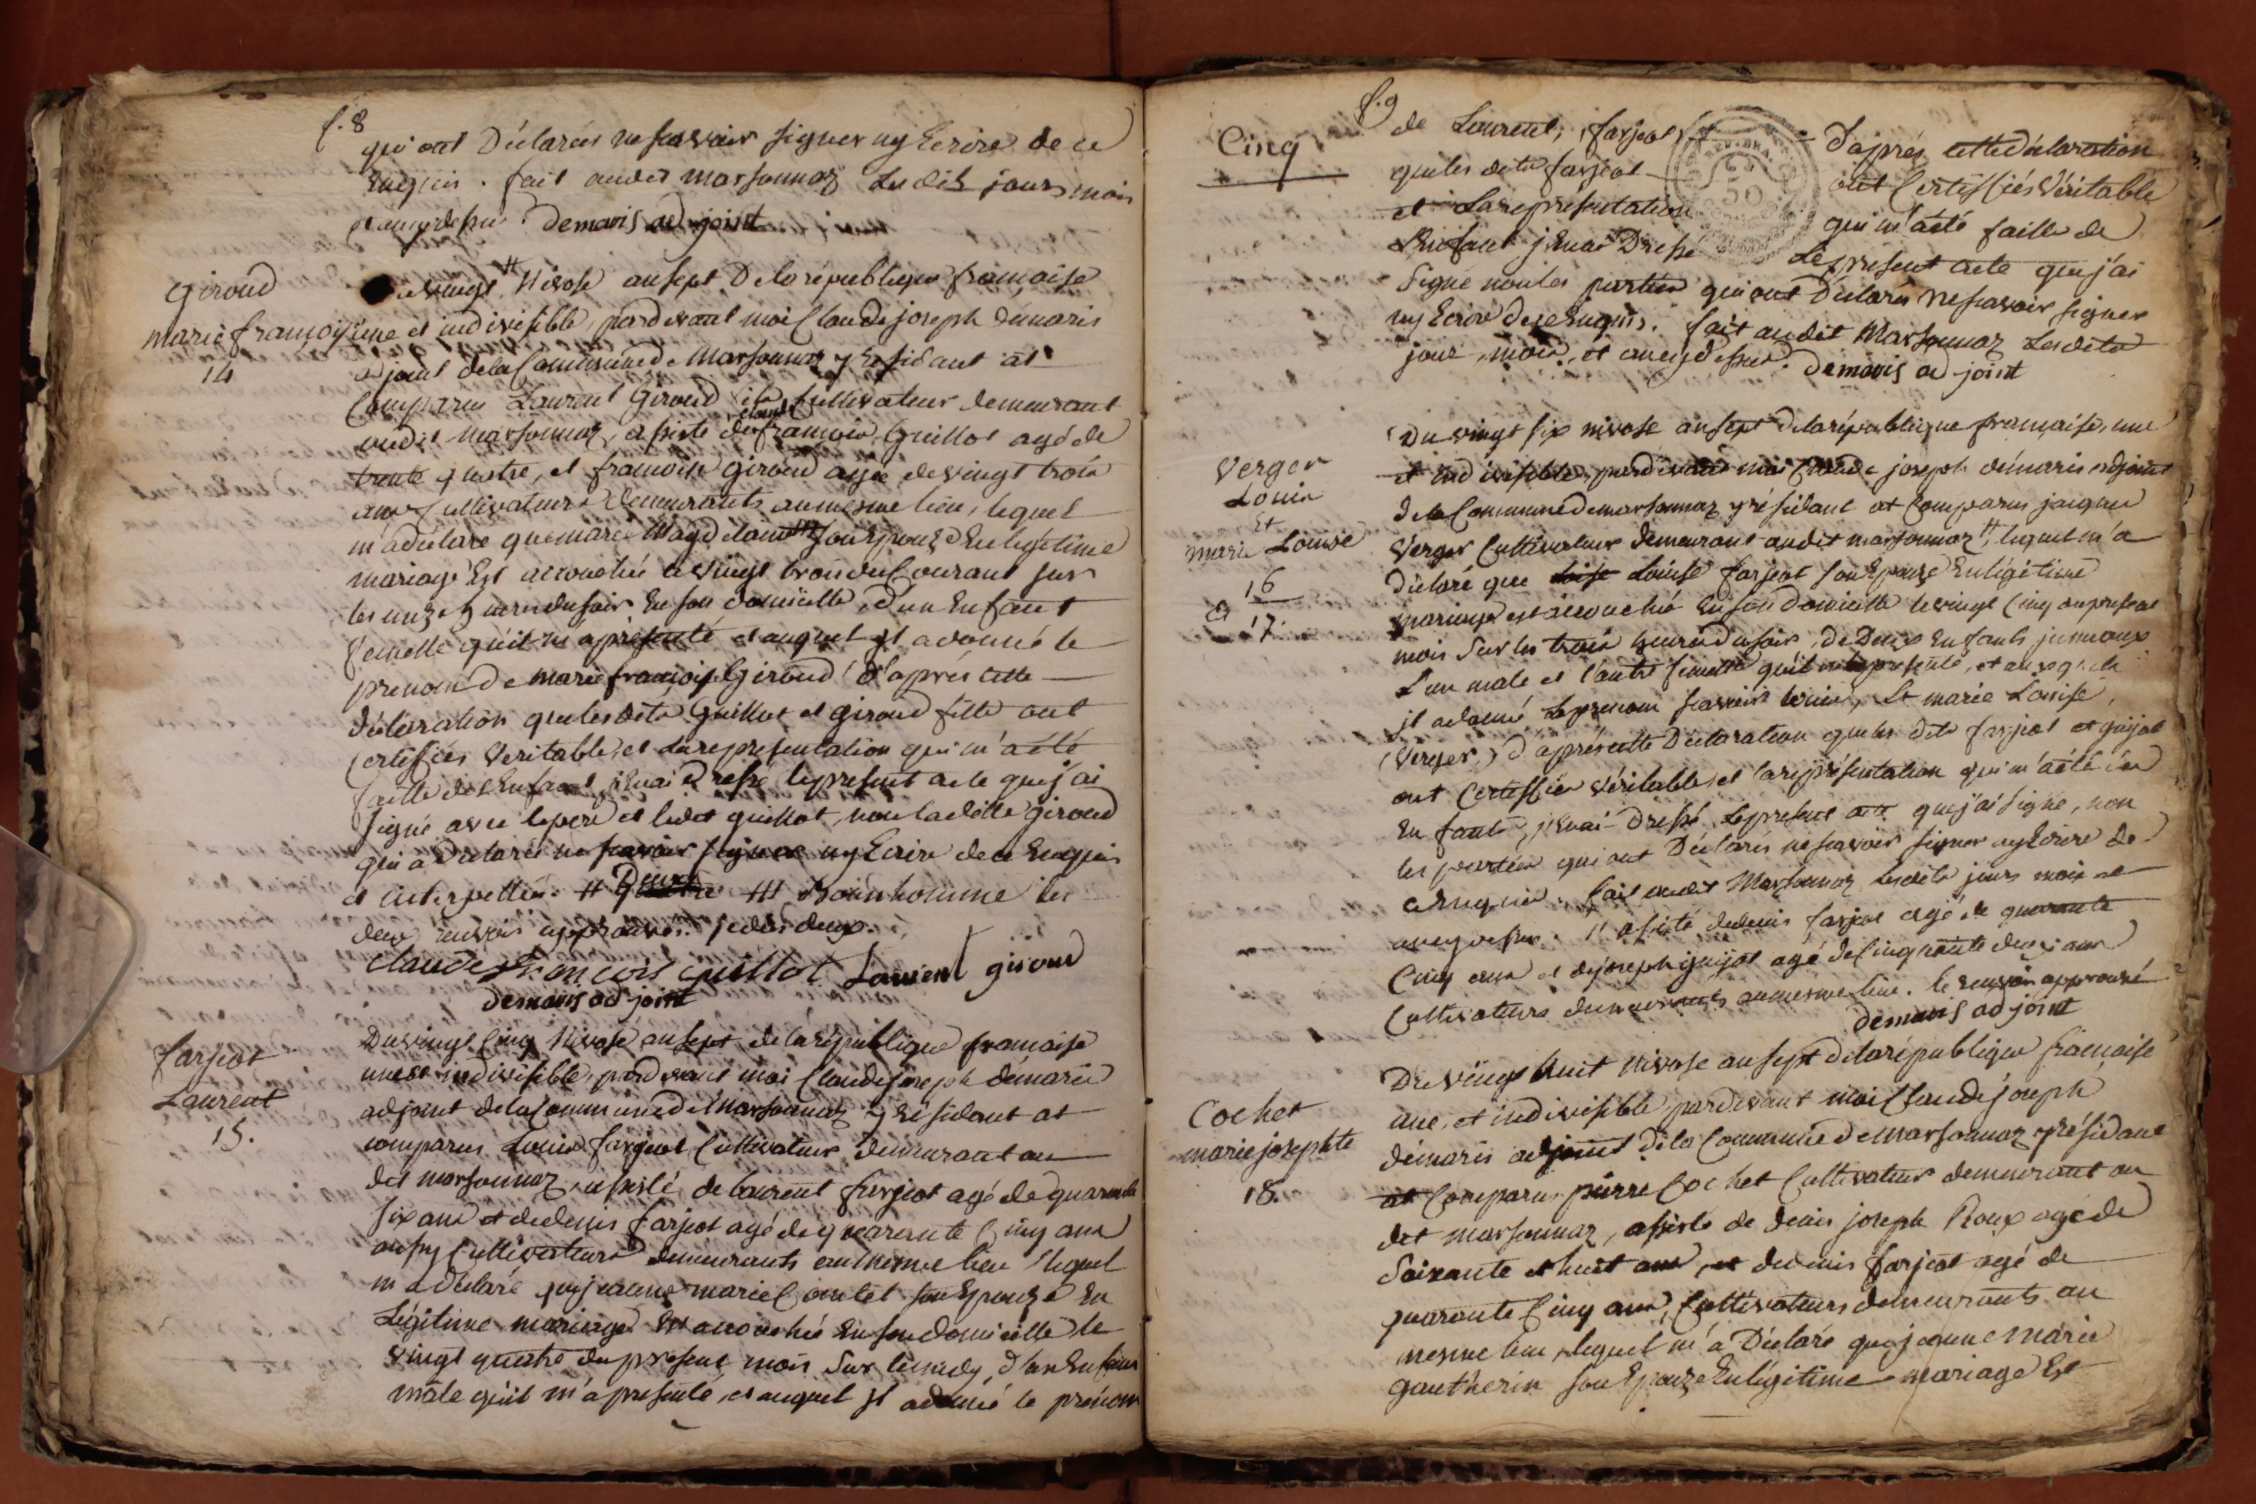 f. 8
qui ont Déclarés ne scavoir signer ny Ecrire de ce
Enquis . fait audit marsonnaz Les dits jours mois
et an que dessus . demaris ad joint
Giroud
marie françoise
14
vingt # Nivose an sept De la république françoise
une et indivisible, pardevant moi Claude joseph démaris
adjoint de la Commune de Marsonnaz y résidant at
Comparu Laurent Giroud Cultivateur demeurant
audit Marsonnaz, assisté de claude françois Guillot agé de
trente quatre, et françoise Giroud agée de vingt trois
ans Cultivateurs Demeurants au mesme lieu, lequel
m'a déclaré que marie Magdelaine ### son Epouze En légitime
mariage Est accouchée le vingt trois du Courant sur
les onze heures du soir En son domicille, d'un Enfant
femelle qu'il m'a présenté et auquel il a donné le
prenom de marie françoise Giroud d'après cette
déclaration que les dits Guillot et Giroud fille ont
certifiés veritable, et la representation qui m'a été
faitte de l'Enfant, j'Enai Dressé le present acte que j'ai
signé avec le pere et ledit guillot, non la ditte giroud
qui a Déclarée ne scavoir signer ny Ecrire de ce Enquis
et interpellée. # Deux ### Bonnhomme les
deux renvois approuvés.
claude François guillot Laurent giroud
demaris ad joint
farjeot
Laurent
15.
Du vingt cinq Nivose an sept de la république francaise
une et indivisible, pardevant moi Claude joseph démaris
adjoint de la Commune de Marsonnaz y résidant at
comparu Louis farjeot Cultivateur demeurant au
dit marsonnaz, assisté de laurent farjeot agé de quarante
six ans et de denis farjeot agé de quarante Cinq ans
aussy Cultivateurs demeurants au mesme lieu lequel
m'a déclaré que jeanne marie Comtet son Epouze En
Légitime mariage Est accouchée En son domicille le
vingt quatre du present mois Sur le midy, d'un Enfant
mâle qu'il m'a presenté, et auquel il a donné le prénom
f. 9
Cinq
de Laurent, farjeot
que les dits farjeot
et La représentation
Enfant j'Enai Dressé
d'après cette déclaration
ont Certiffiés Véritable
qui m'a été faitte de
Le present acte que j'ai
Signé non les parties qui ont Déclarés ne scavoir signer
ny Ecrire de ce Enquis. fait audit Marsonnaz Les dits
jour, mois, et an que dessus. demaris ad joint
Verger
Louis
Et
Marie Louise
16
et
17.
Du vingt six nivose an sept de la république française, une
et indivisible, pardevant moi Claude joseph démaris adjoint
de la Commune de marsonnaz y résidant at Comparu jaique
Verger Cultivateur demeurant audit marsonnaz #, lequel m'a
Déclaré que Louise farjeot son Epouze En légitime
mariage est accouchée En son domicille le vingt Cinq du present
mois Sur les trois heures du soir, de Deux Enfants jumeaux
L'un male et l'autre femelle qu'il m'a presenté, et auxquels
il a donné Le prenom scavoir Louis, Et marie Louise,
(Verger,) d'après cette Déclaration que les dits farjeot et guijot
ont Certiffiés véritable, et la représentation qui m'a été des
Enfants, j'Enai Dressé Le présent acte que j'ai signé, non
les parties qui ont Déclarés ne scavoir signer ny Ecrire de
ce Enquis. fait audit Marsonnaz Les dits jours mois et
an que dessus. # assisté de denis farjeot agé de quarante
Cinq ans et de joseph guijot agé de Cinquante deux ans
Cultivateurs demeurants au mesme lieu. le renvoi approuvé
demaris ad joint
Cochet
marie josephte
18.
Du vingt huit Nivose an sept de la république française
une, et indivisible, pardevant moi Claude joseph
démaris adjoint de la Commune de Marsonnaz y résidant
at Comparu pierre Cochet Cultivateur demeurant au
dit marsonnaz, assisté de denis joseph Roux agé de
Soixante et huit ans, et denis farjeot agé de
quarante Cinq ans, Cultivateurs demeurants au
mesme lieu, lequel m'a Déclaré que jeanne Marie
gautherin son Epouze En légitime mariage Est